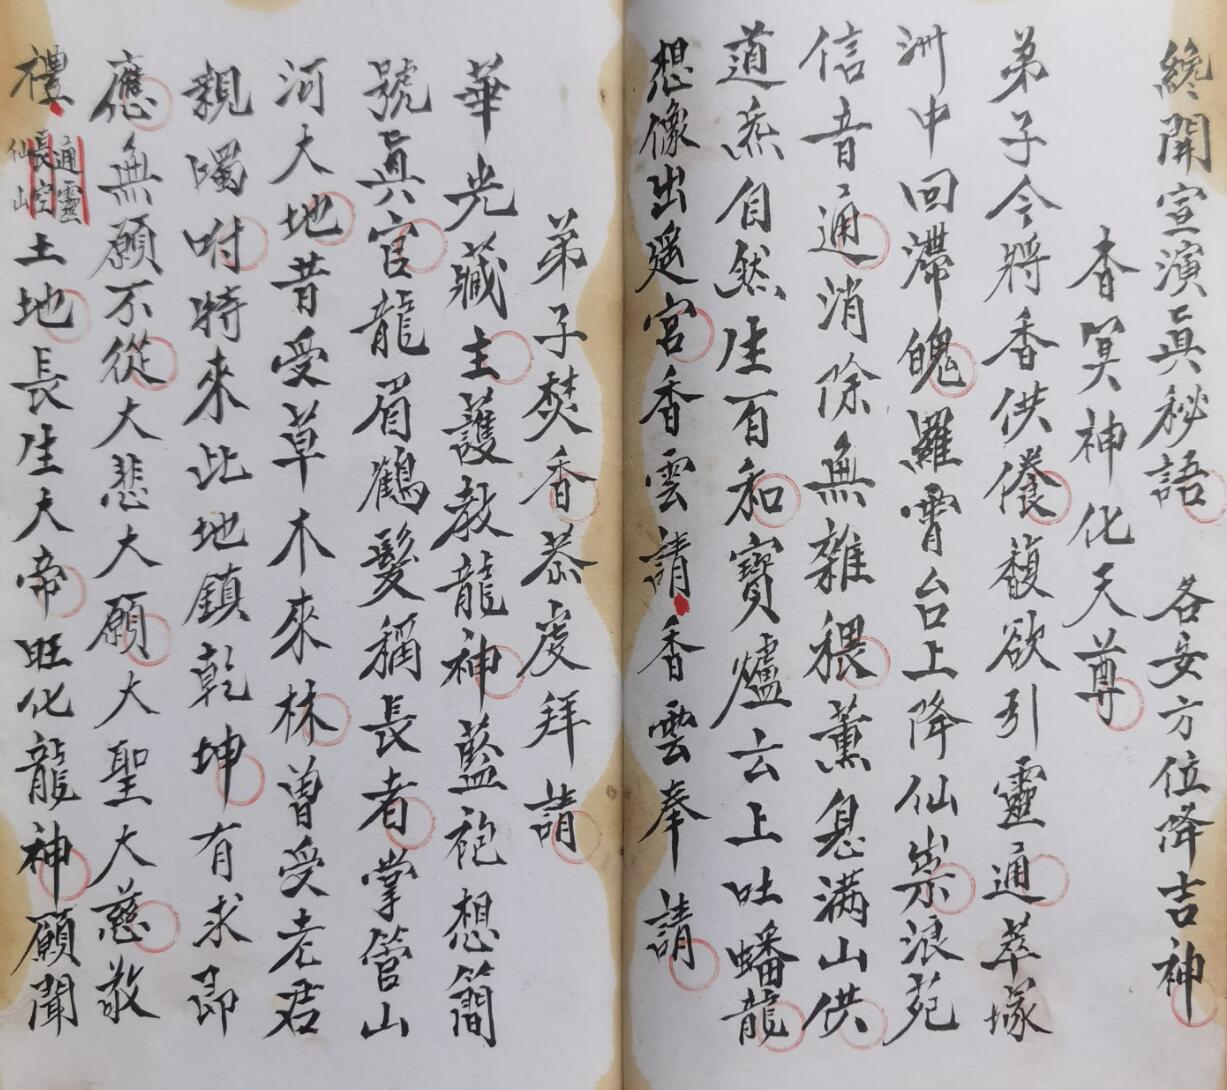 纔開宣演眞秘語 各安方位降吉神
杳冥神化天尊
弟子今將香供養馥欲引靈通萃塚
洲中回滯魄羅霄台上降仙崇浪苑
信音通消除無雜穢薰息满山供
道炁自然生百和寶爐云上吐蟠龍
想像出遥宮香雲請香雲奉請
弟子焚香恭虔拜請
華光藏主護教龍神藍袍想簡
號眞官龍眉鶴髮稱長者掌管山
河大地昔受草木來林曽受老君
親囑咐特來此地鎮乾坤有求即
應無願不從大悲大願大聖大慈敬
禮通靈長空仙山土地長生大帝旺化龍神願聞